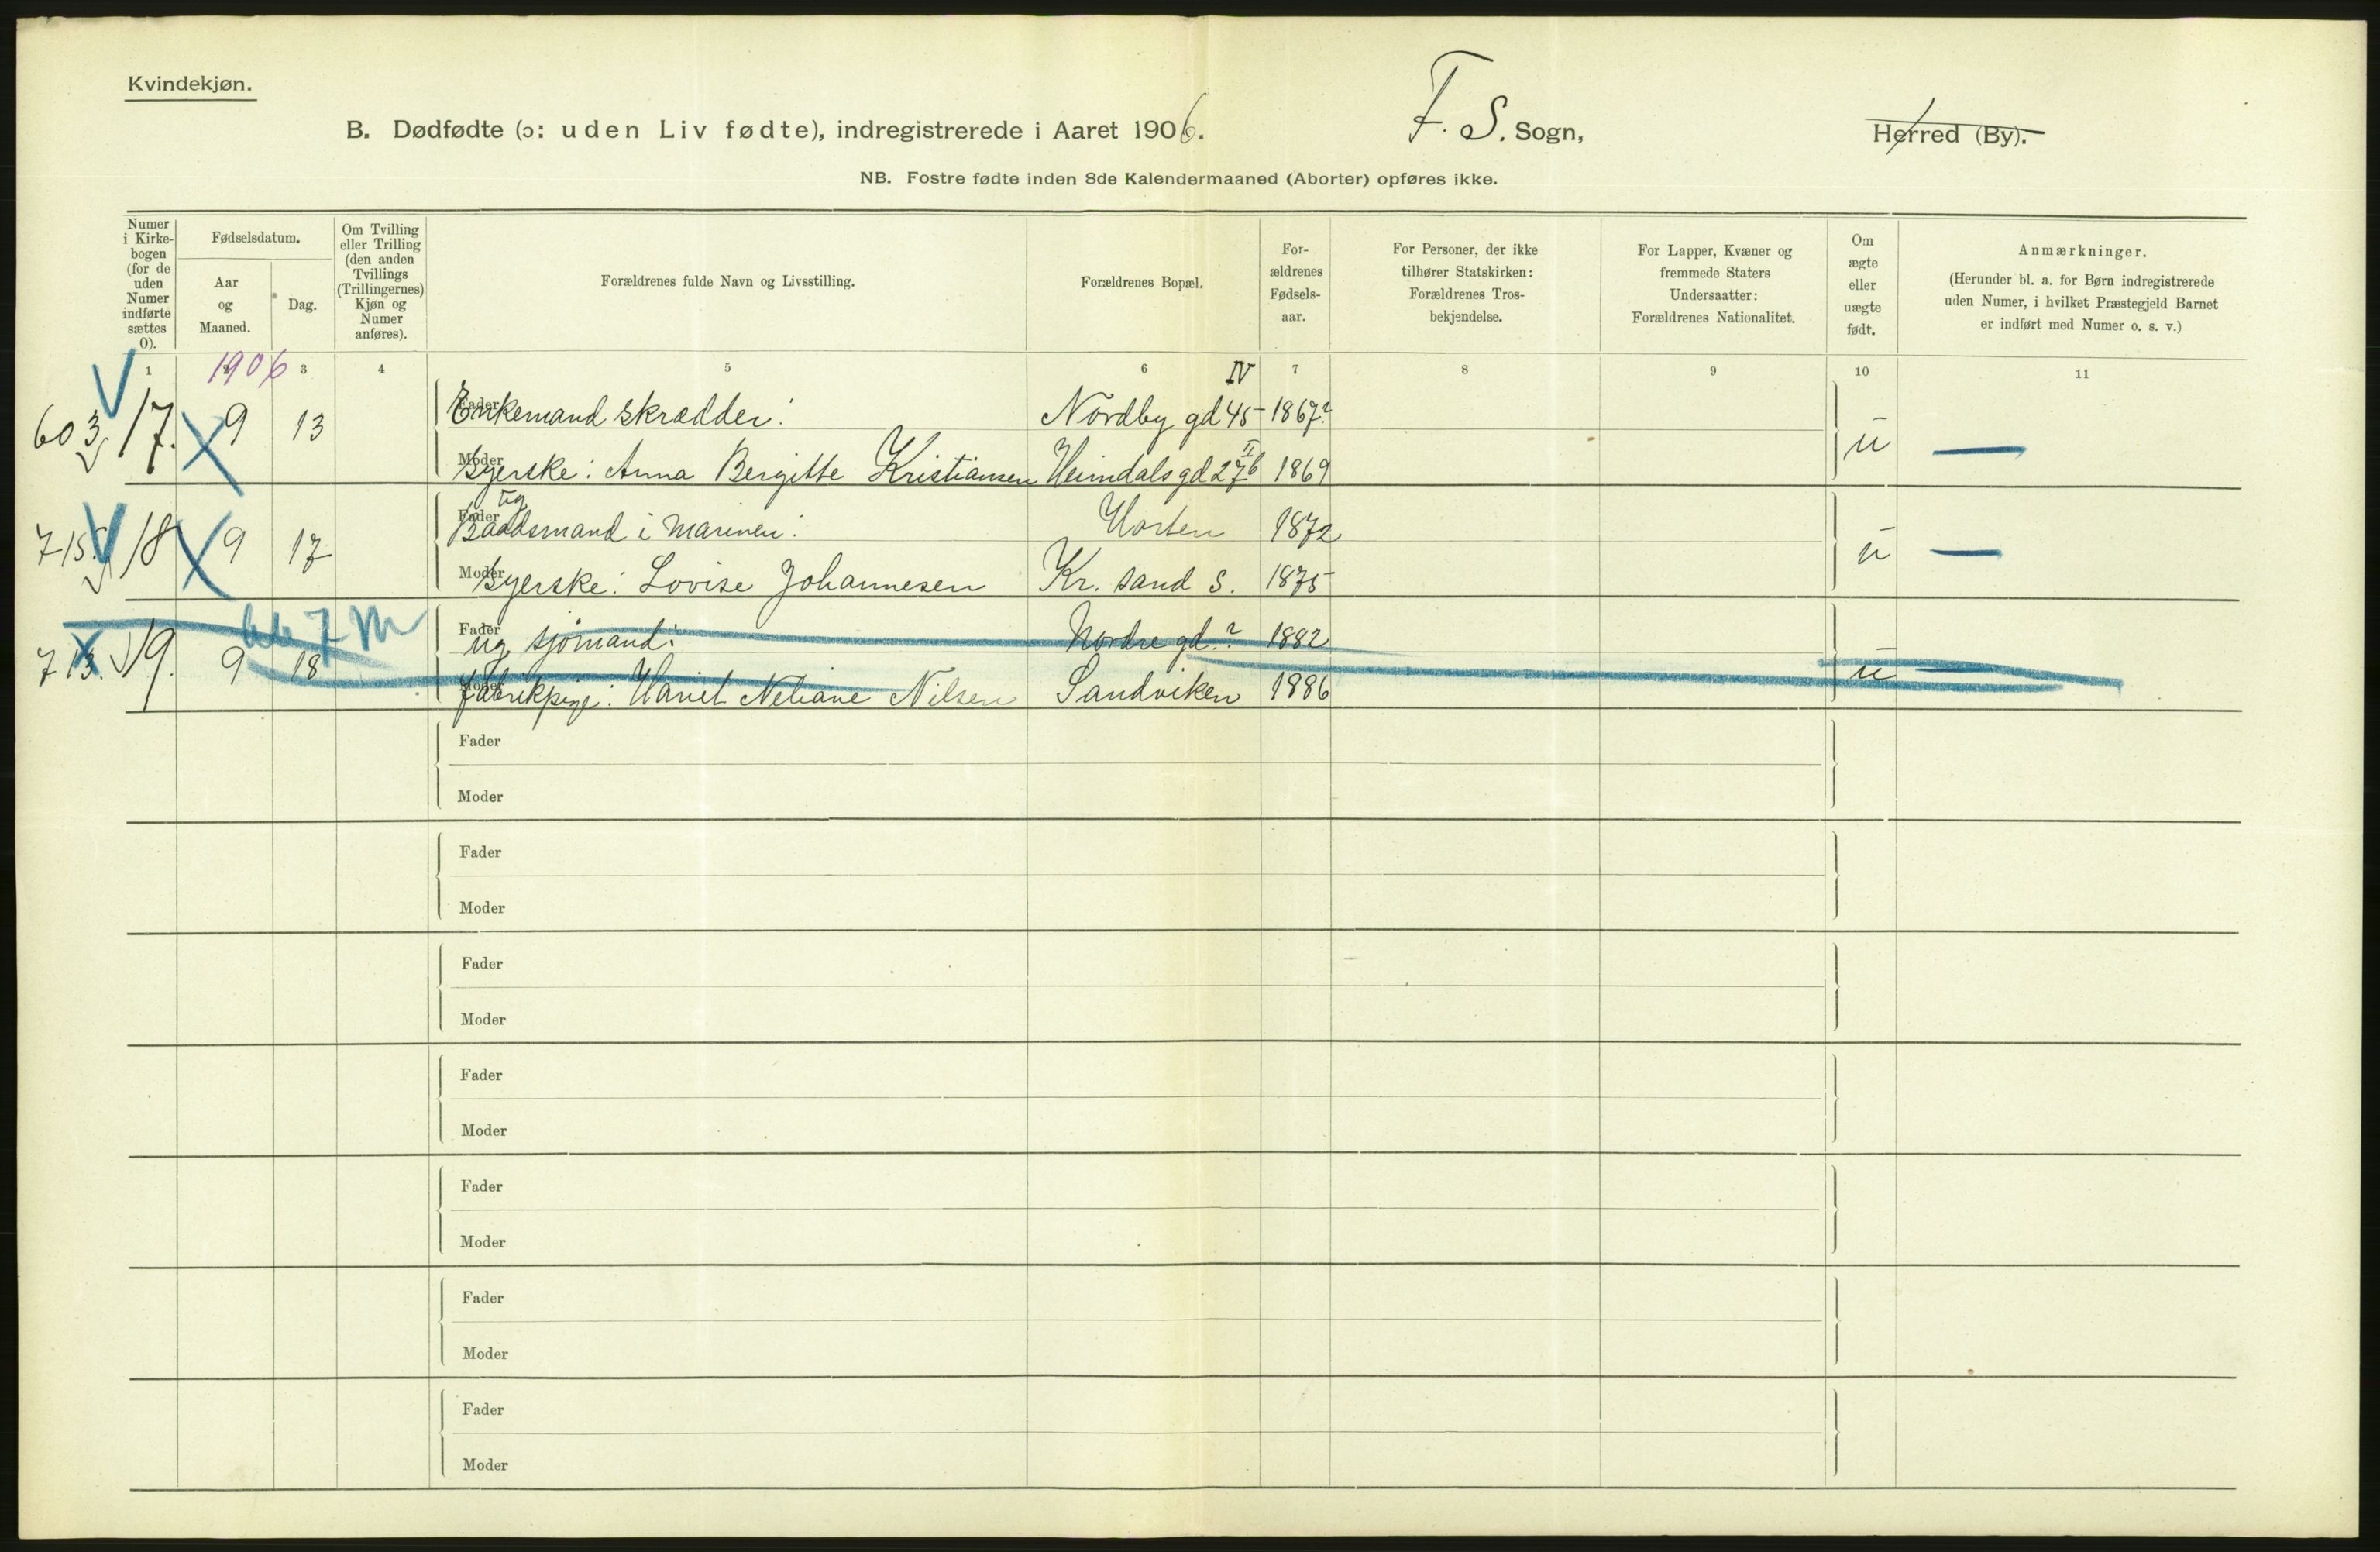 Kvindekjøn.
B. Dødfødte (ɔ: uden Liv fødte), indregistrerede i Aaret 1906. F. S. Sogn, Herred (By).
NB. Fostre fødte inden 8de Kalendermaaned (Aborter) opføres ikke.
Numer i Kirkebogen (for de uden Numer indførte sættes 0).
Fødselsdatum.
Aar og Maaned.
Dag.
Om Tvilling eller Trilling (den anden Tvillings (Trillingernes) Kjøn og Numer anføres).
Forældrenes fulde Navn og Livsstilling.
Forældrenes Bopæl.
Forældrenes Fødselsaar.
For Personer, der ikke tilhører Statskirken: Forældrenes Trosbekjendelse.
For Lapper, Kvæner og fremmede Staters Undersaatter: Forældrenes Nationalitet.
Om ægte eller uægte født.
Anmærkninger.
(Herunder bl. a. for Børn indregistrerede uden Numer, i hvilket Præstegjeld Barnet er indført med Numer o. s. v.)
1 2 3 4 5 6 7 8 9 10 11
1906
603. 17. 9 13 Fader Enkemand skrædder: Nordby gd 45 IV 1867? u —
Moder Syerske: Anna Bergitte Kristiansen Heimdals gd 27b II 1869
715. 18 9 17 Fader ug Baadsmand i Marinen: Horten 1872 u —
Moder Syerske: Lovise Johannesen Kr. sand S. 1875
713. 19. 9 18 Fader ug sjömand: Nordre gd. ? 1882 u
Moder fabrikpige: Nilsen Sandviken 1886
Fader
Moder
Fader
Moder
Fader
Moder
Fader
Moder
Fader
Moder
Fader
Moder
Fader
Moder